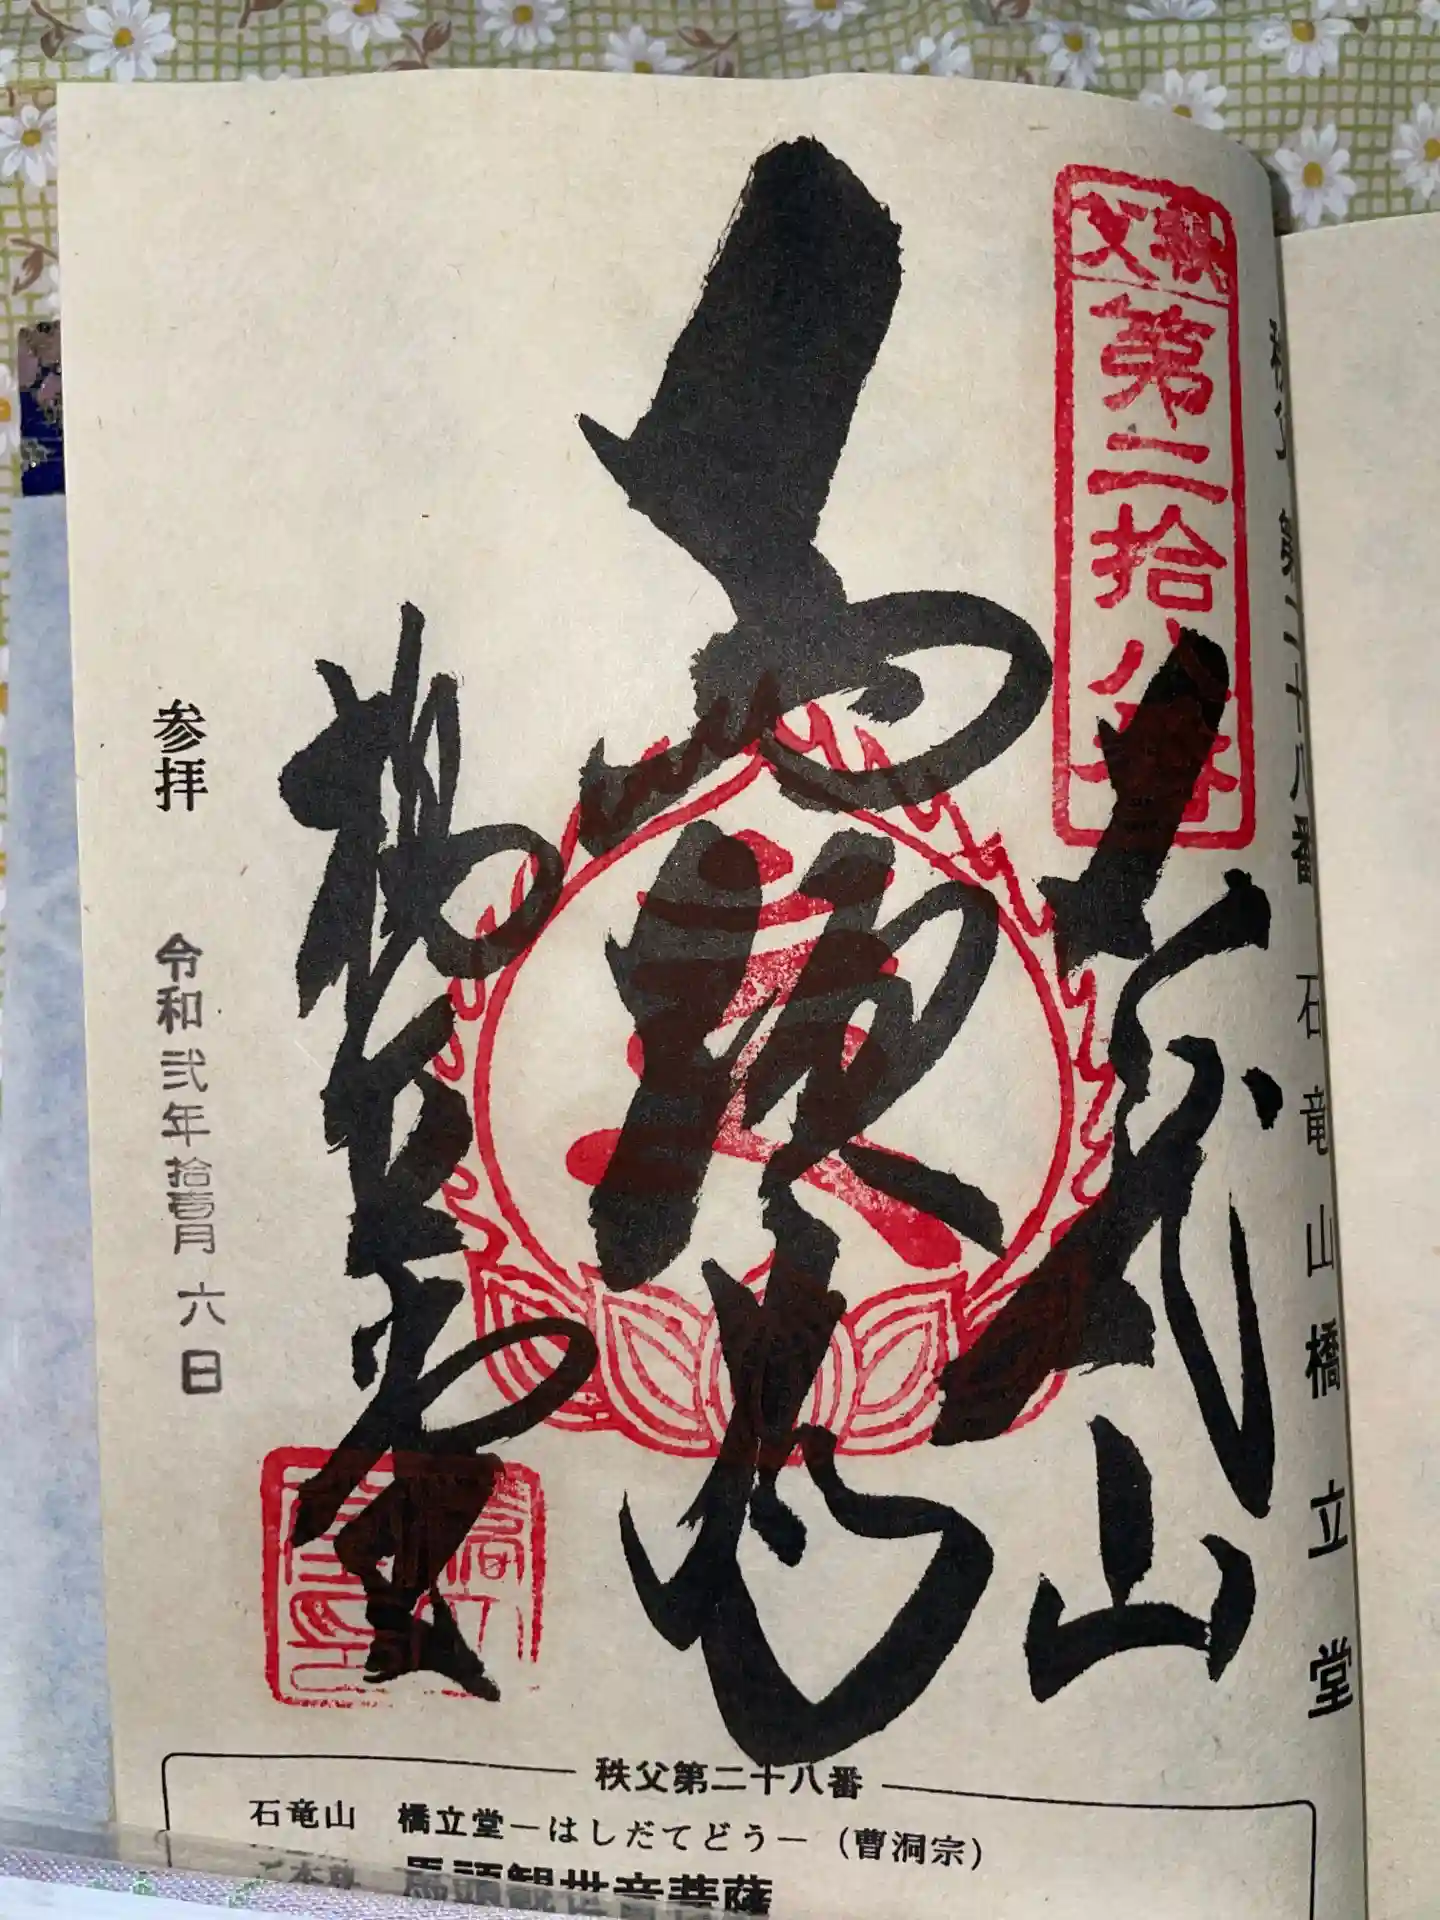 秩父
第二拾八番
石竜山橋立堂
石竜山
馬頭尊
橋立堂
参拝
令和弐年拾壱月六日
秩父第二十八番
石竜山 橋立堂－はしだてどう－（曹洞宗）
ご本尊 馬頭観世音菩薩